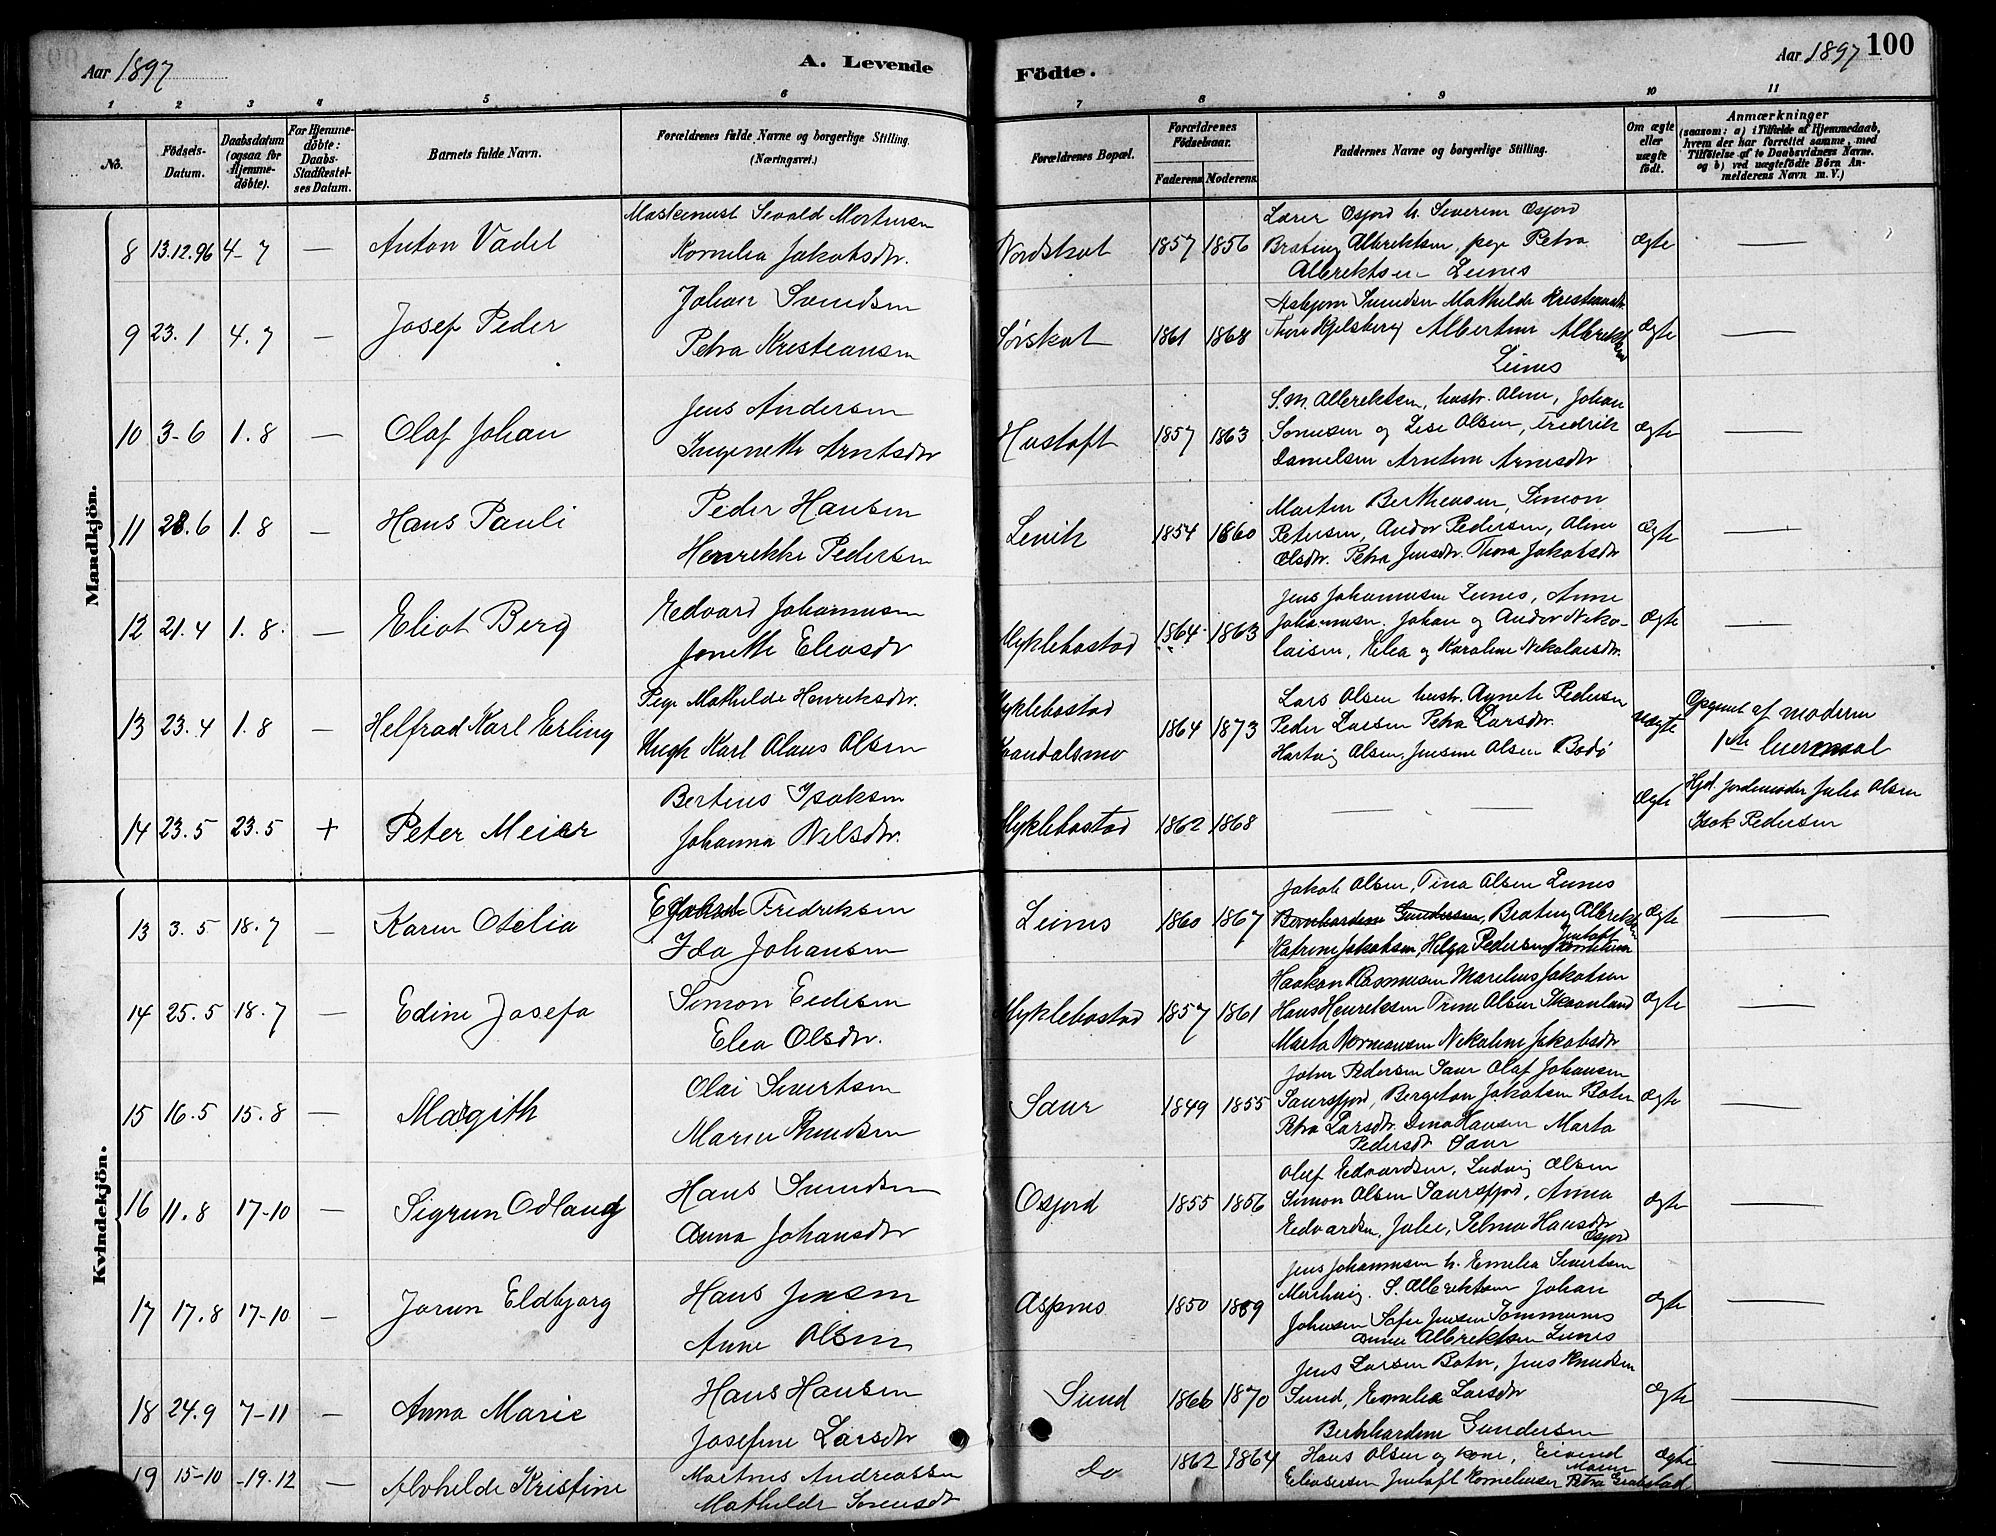 Aar 1897
A. Levende
Födte.
Aar 1897 100
1 2 3 4 5 6 7 8 9 10 11
No.
Födsels-
Datum.
Daabsdatum
(ogsaa for
Hjemme-
döbte).
For Hjemme-
döbte:
Daabs-
Stadfæstel-
ses Datum.
Barnets fulde Navn.
Forældrenes fulde Navne og borgerlige Stilling.
(Næringsvei.)
Forældrenes Bopæl.
Forældrenes
Födselsaar.
Faderens. Moderens.
Faddernes Navne og borgerlige Stilling.
Om ægte
eller
uægte
födt.
Anmærkninger
(saasom: a) i Tilfælde af Hjemmedaab,
hvem der har forrettet samme, med
Tilföielse af to Daabsvidners Navne.
og b) ved uægtefödte Börn An-
melderens Navn m. V.)
Mandkjön.
8 13.12.96 4-7 — Anton Vadel
Sevald Mortensen
Kornelia Jakobsdtr.
Nordskot 1857 1856
Lærer Osfjord h. Severine Osfjord
Albrektsen, pige Petra
Albrektsen Leines
Ægte —
9 23.1 4.7 — Josef Peder
Johan Svendsen
Petra Kristiansen
Sörskot 1861 1868
Asbjörn Svendsen Mathilde Kristiansdtr.
Albertine Albrektsen
Leines
Ægte —
10 3-6 1.8 — Olaf Johan
Jens Andersen
Ingenette Arntsdtr
Hustoft 1857 1863
S.M. Albrektsen, hustr. Aline, Johan
og Lise Olsen, Fredrik
Danielsen Arntine Arnesdtr
Ægte —
11 28.6 1.8 — Hans Pauli
Peder Hansen
Henrikke Pedersen
Lenik 1854 1860
Martin Berthensen, Simon
Petersen, Andor Pedersen, Aline
Olsdtr. Petra Jensdtr. Thora Jakobsdtr
Ægte —
12 21.4 1.8. — Eliot Berg
Edvard Johannesen
Jonette Eliasdtr
Myklebostad 1864 1863
Jens Johannesen Leines, Anne
Johannesen. Johan og Andor Niko-
laisen, Elea og Karoline Nikolaisdtr.
Ægte —
13 23.4 1.8 — Helfrad Karl Erling
Pige Mathilde Henriksdtr.
Karl Olaus Olsen
Myklebostad
1864 1873
Lars Olsen hustr. Agnete Pedersen
Peder Larsen Petra Larsdtr.
Hartvig Olsen, Jensine Olsen Bodö
uægte
Opgivet af moderen
14 23.5 23.5 + Peter Meier
Bertius Isaksen
Johanna Nelsdtr.
Myklebostad 1862 1868
— —
Ægte
Hjd. jordemoder Julie Olsen
Isak Pedersen
Kvindekjön.
13 3.5 18.7 — Karen Otelia
Fredriksen
Ida Johansen
Leines 1860 1867
Jakob Olsen, Tina Olsen Leines
Bernhardine Gundersen, Albrektsen
Katrine Jakobsen, Helga Pedersen
Ægte —
14 25.5 18.7 — Edine Josefa
Simon Edisen
Elea Olsdtr.
Myklebostad 1857 1861
Haakon Rasmusen Marelius Jakobsen
Hans Henriksen Trine Olsen Skaanland
Marta Normansen Nikoline Jakobsdtr
Ægte —
15 16.5 15.8 — Margith
Olai Sivertsen
Maren Knudsen
Saur 1849 1855
John Pedersen Saur Olaf Johansen
Saursfjord, Bergiton Jakobsen Boten
Petra Larsdtr. Dina Hansen Marta
Pedersdtr Saur
Ægte —
16 11.8 17-10 — Sigrun Odlaug
Hans Svendsen
Anna Johansdtr
Osfjord 1855 1856
Oluf Edvardsen, Ludvig Olsen
Simon Olsen Saursfjord, Anna
Edvardsen, Julie, Selma Hansdtr
Osfjord
Ægte —
17 17.8 17-10 — Jorun Eldbjorg
Hans Jensen
Anne Olsen
Aspnes 1850 1859
Jens Johannesen h. Emelia Sivertsen
S. Albrektsen Johan
Johnsen Jensen Tommernes
Anne Albrektsen Leines
Ægte —
18 24.9 7-11 — Anna Marie
Hans Hansen
Josefine Larsdtr
Sund 1866 1870
Jens Larsen Botn, Jens Knudsen
Sund, Emelia Larsdtr
Bernhardine Gundersen
Ægte —
19 15-10 -19.12 — Alvhilde Kristine
Martnus Andreassen
Mathilde Sörensdtr
do 1862 1864
Hans Olsen og kone, Eivind
Eliasersen Justoft Korneliusen Maren Petra
Ægte —